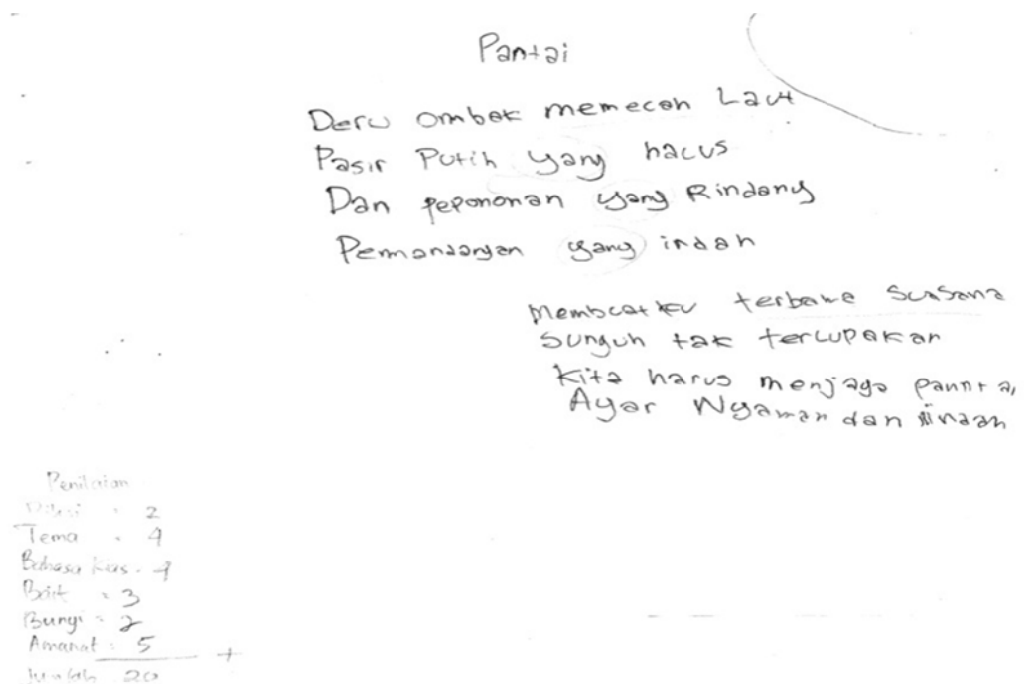 Pantai
Deru ombak memecah Laut
Pasir Putih yang halus
Dan pepohonan yang Rindang
Pemandangan yang indah
Membuatku terbawa Suasana
Sunguh tak terlupakan
Kita harus menjaga panntai
Agar Nyaman dan indah
Penilaian
Diksi : 2
Tema : 4
Bahasa kias : 4
Bait : 3
Bunyi : 2
Amanat : 5
+
Jumlah 20